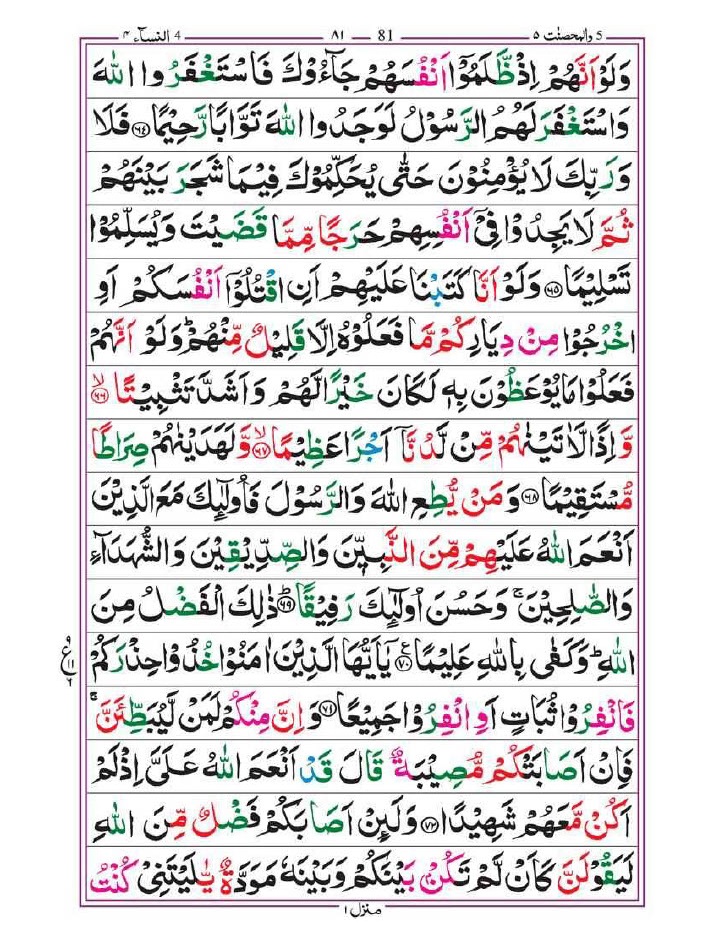 5 والمحصنت ۵ 81 — ۸۱ 4 النسآء ۴
وَلَوْ اَنَّهُمْ اِذْ ظَّلَمُوْۤا اَنْفُسَهُمْ جَآءُوْكَ فَاسْتَغْفَرُوا اللّٰهَ
وَاسْتَغْفَرَ لَهُمُ الرَّسُوْلُ لَوَجَدُوا اللّٰهَ تَوَّابًا رَّحِيْمًا ﴿۶۴﴾ فَلَا
وَرَبِّكَ لَا يُؤْمِنُوْنَ حَتّٰى يُحَكِّمُوْكَ فِيْمَا شَجَرَ بَيْنَهُمْ
ثُمَّ لَا يَجِدُوْا فِيْۤ اَنْفُسِهِمْ حَرَجًا مِّمَّا قَضَيْتَ وَيُسَلِّمُوْا
تَسْلِيْمًا ﴿۶۵﴾ وَلَوْ اَنَّا كَتَبْنَا عَلَيْهِمْ اَنِ اقْتُلُوْۤا اَنْفُسَكُمْ اَوِ
اخْرُجُوْا مِنْ دِيَارِكُمْ مَّا فَعَلُوْهُ اِلَّا قَلِيْلٌ مِّنْهُمْ ؕ وَلَوْ اَنَّهُمْ
فَعَلُوْا مَا يُوْعَظُوْنَ بِهٖ لَكَانَ خَيْرًا لَّهُمْ وَاَشَدَّ تَثْبِيْتًا ﴿۶۶﴾ۙ
وَّاِذًا لَّاٰتَيْنٰهُمْ مِّنْ لَّدُنَّاۤ اَجْرًا عَظِيْمًا ﴿۶۷﴾ۙ وَّلَهَدَيْنٰهُمْ صِرَاطًا
مُّسْتَقِيْمًا ﴿۶۸﴾ وَمَنْ يُّطِعِ اللّٰهَ وَالرَّسُوْلَ فَاُولٰٓئِكَ مَعَ الَّذِيْنَ
اَنْعَمَ اللّٰهُ عَلَيْهِمْ مِّنَ النَّبِيّٖنَ وَالصِّدِّيْقِيْنَ وَالشُّهَدَآءِ
وَالصّٰلِحِيْنَ ۚ وَحَسُنَ اُولٰٓئِكَ رَفِيْقًا ﴿۶۹﴾ؕ ذٰلِكَ الْفَضْلُ مِنَ
اللّٰهِ ؕ وَكَفٰى بِاللّٰهِ عَلِيْمًا ﴿۷۰﴾ يٰۤاَيُّهَا الَّذِيْنَ اٰمَنُوْا خُذُوْا حِذْرَكُمْ
فَانْفِرُوْا ثُبَاتٍ اَوِ انْفِرُوْا جَمِيْعًا ﴿۷۱﴾ وَاِنَّ مِنْكُمْ لَمَنْ لَّيُبَطِّئَنَّ ۚ
فَاِنْ اَصَابَتْكُمْ مُّصِيْبَةٌ قَالَ قَدْ اَنْعَمَ اللّٰهُ عَلَيَّ اِذْ لَمْ
اَكُنْ مَّعَهُمْ شَهِيْدًا ﴿۷۲﴾ وَلَئِنْ اَصَابَكُمْ فَضْلٌ مِّنَ اللّٰهِ
لَيَقُوْلَنَّ كَاَنْ لَّمْ تَكُنْۢ بَيْنَكُمْ وَبَيْنَهٗ مَوَدَّةٌ يّٰلَيْتَنِيْ كُنْتُ
منزل ۱